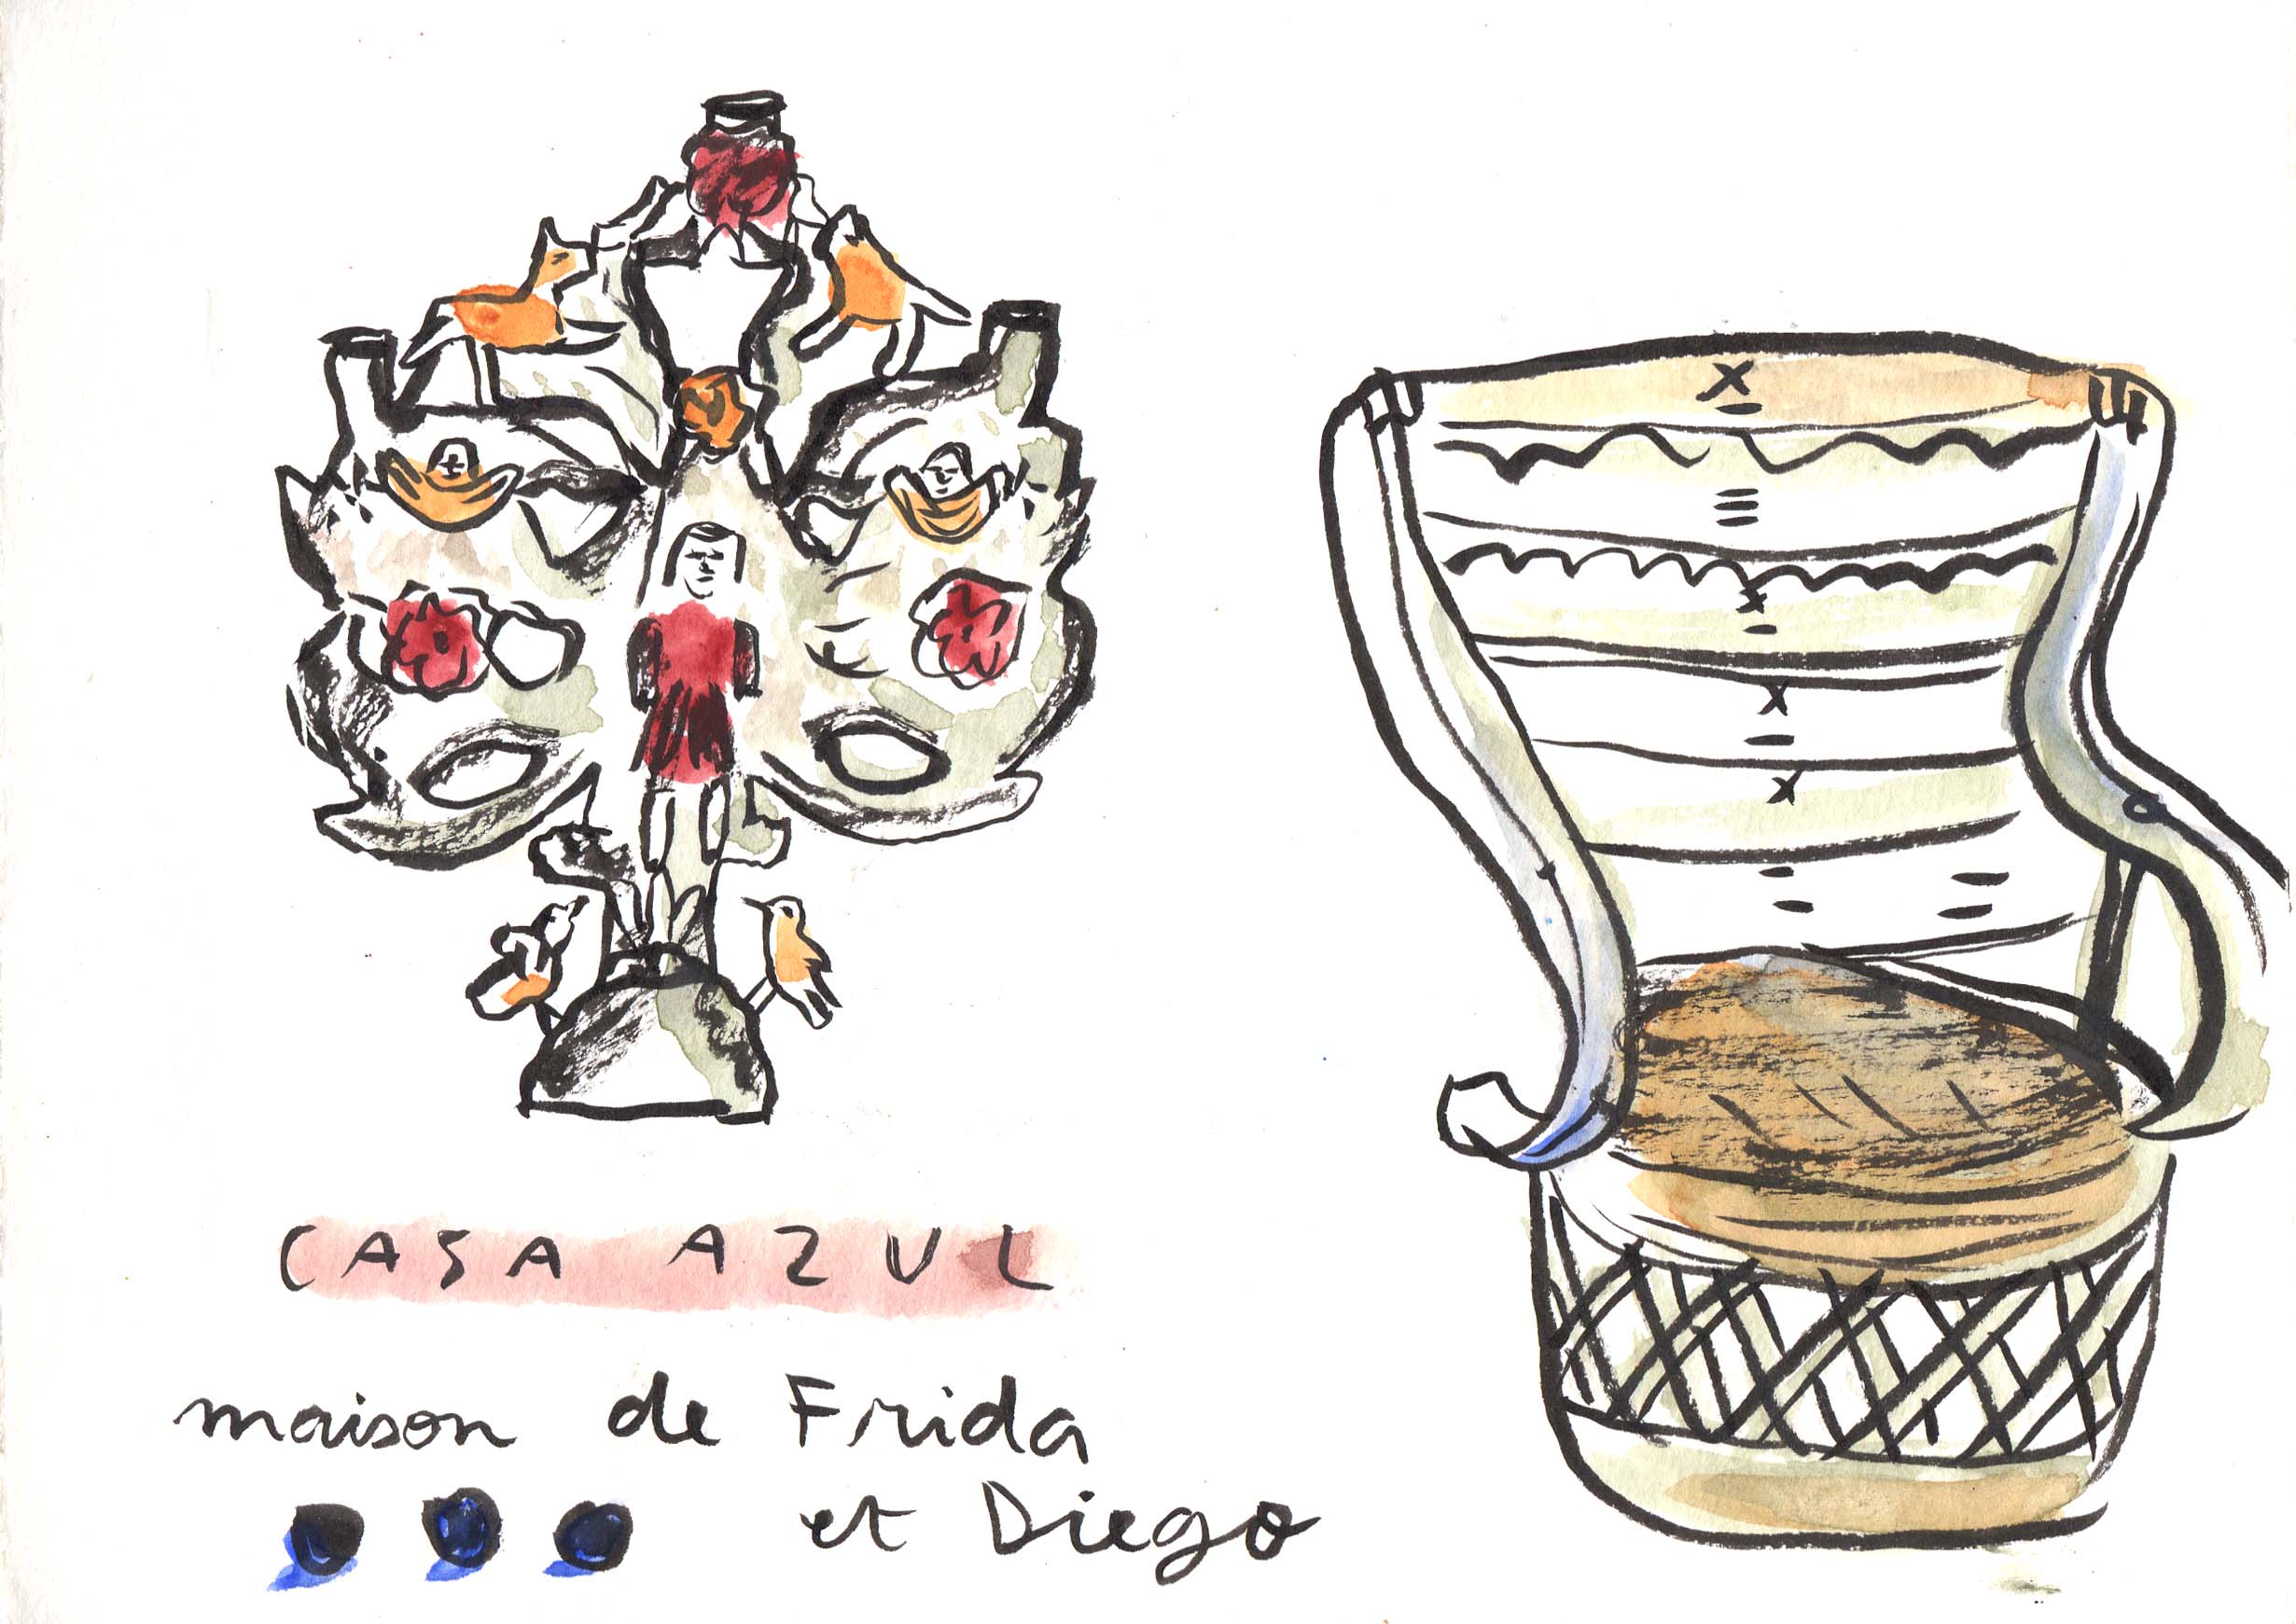 CASA AZUL
maison de Frida
et Diego